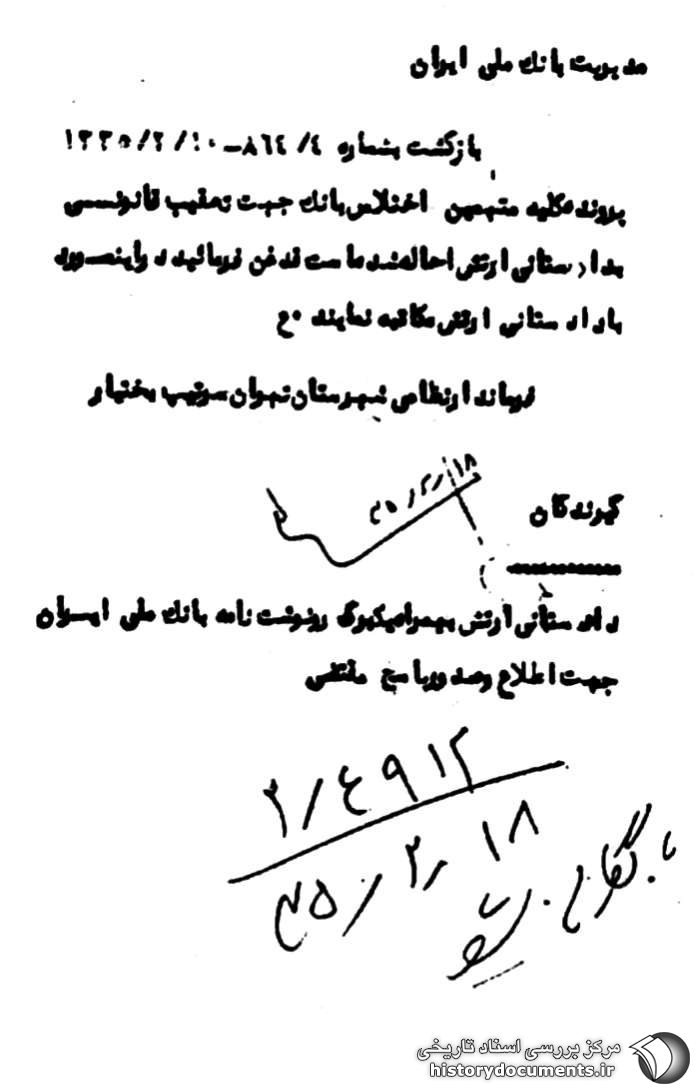 مدیریت بانك ملی ایران
بازگشت بشماره ٨٦٤/٤-١٣٣٥/٢/١٠
پرونده کلیه متهمین اختلاس بانك جهت تعقیب قانونسی
بدادرستانی ارتش احاله شده است قدغن فرمائید در اینمسورد
با دادستانی ارتش مکاتبه نمایند ع
فرماندار نظامی شهرستان تهران سرتیپ بختیار
١٨/٢/٣٥
گیرندگان
دادستانی ارتش بهمراه یکبرگ رونوشت نامه بانك ملی ایسران
جهت اطلاع و صدور پاسخ مقتضی
٢/٤٩١٢
١٨/٢/٣٥
بایگانی شود
مرکز بررسی اسناد تاریخی
historydocuments.ir